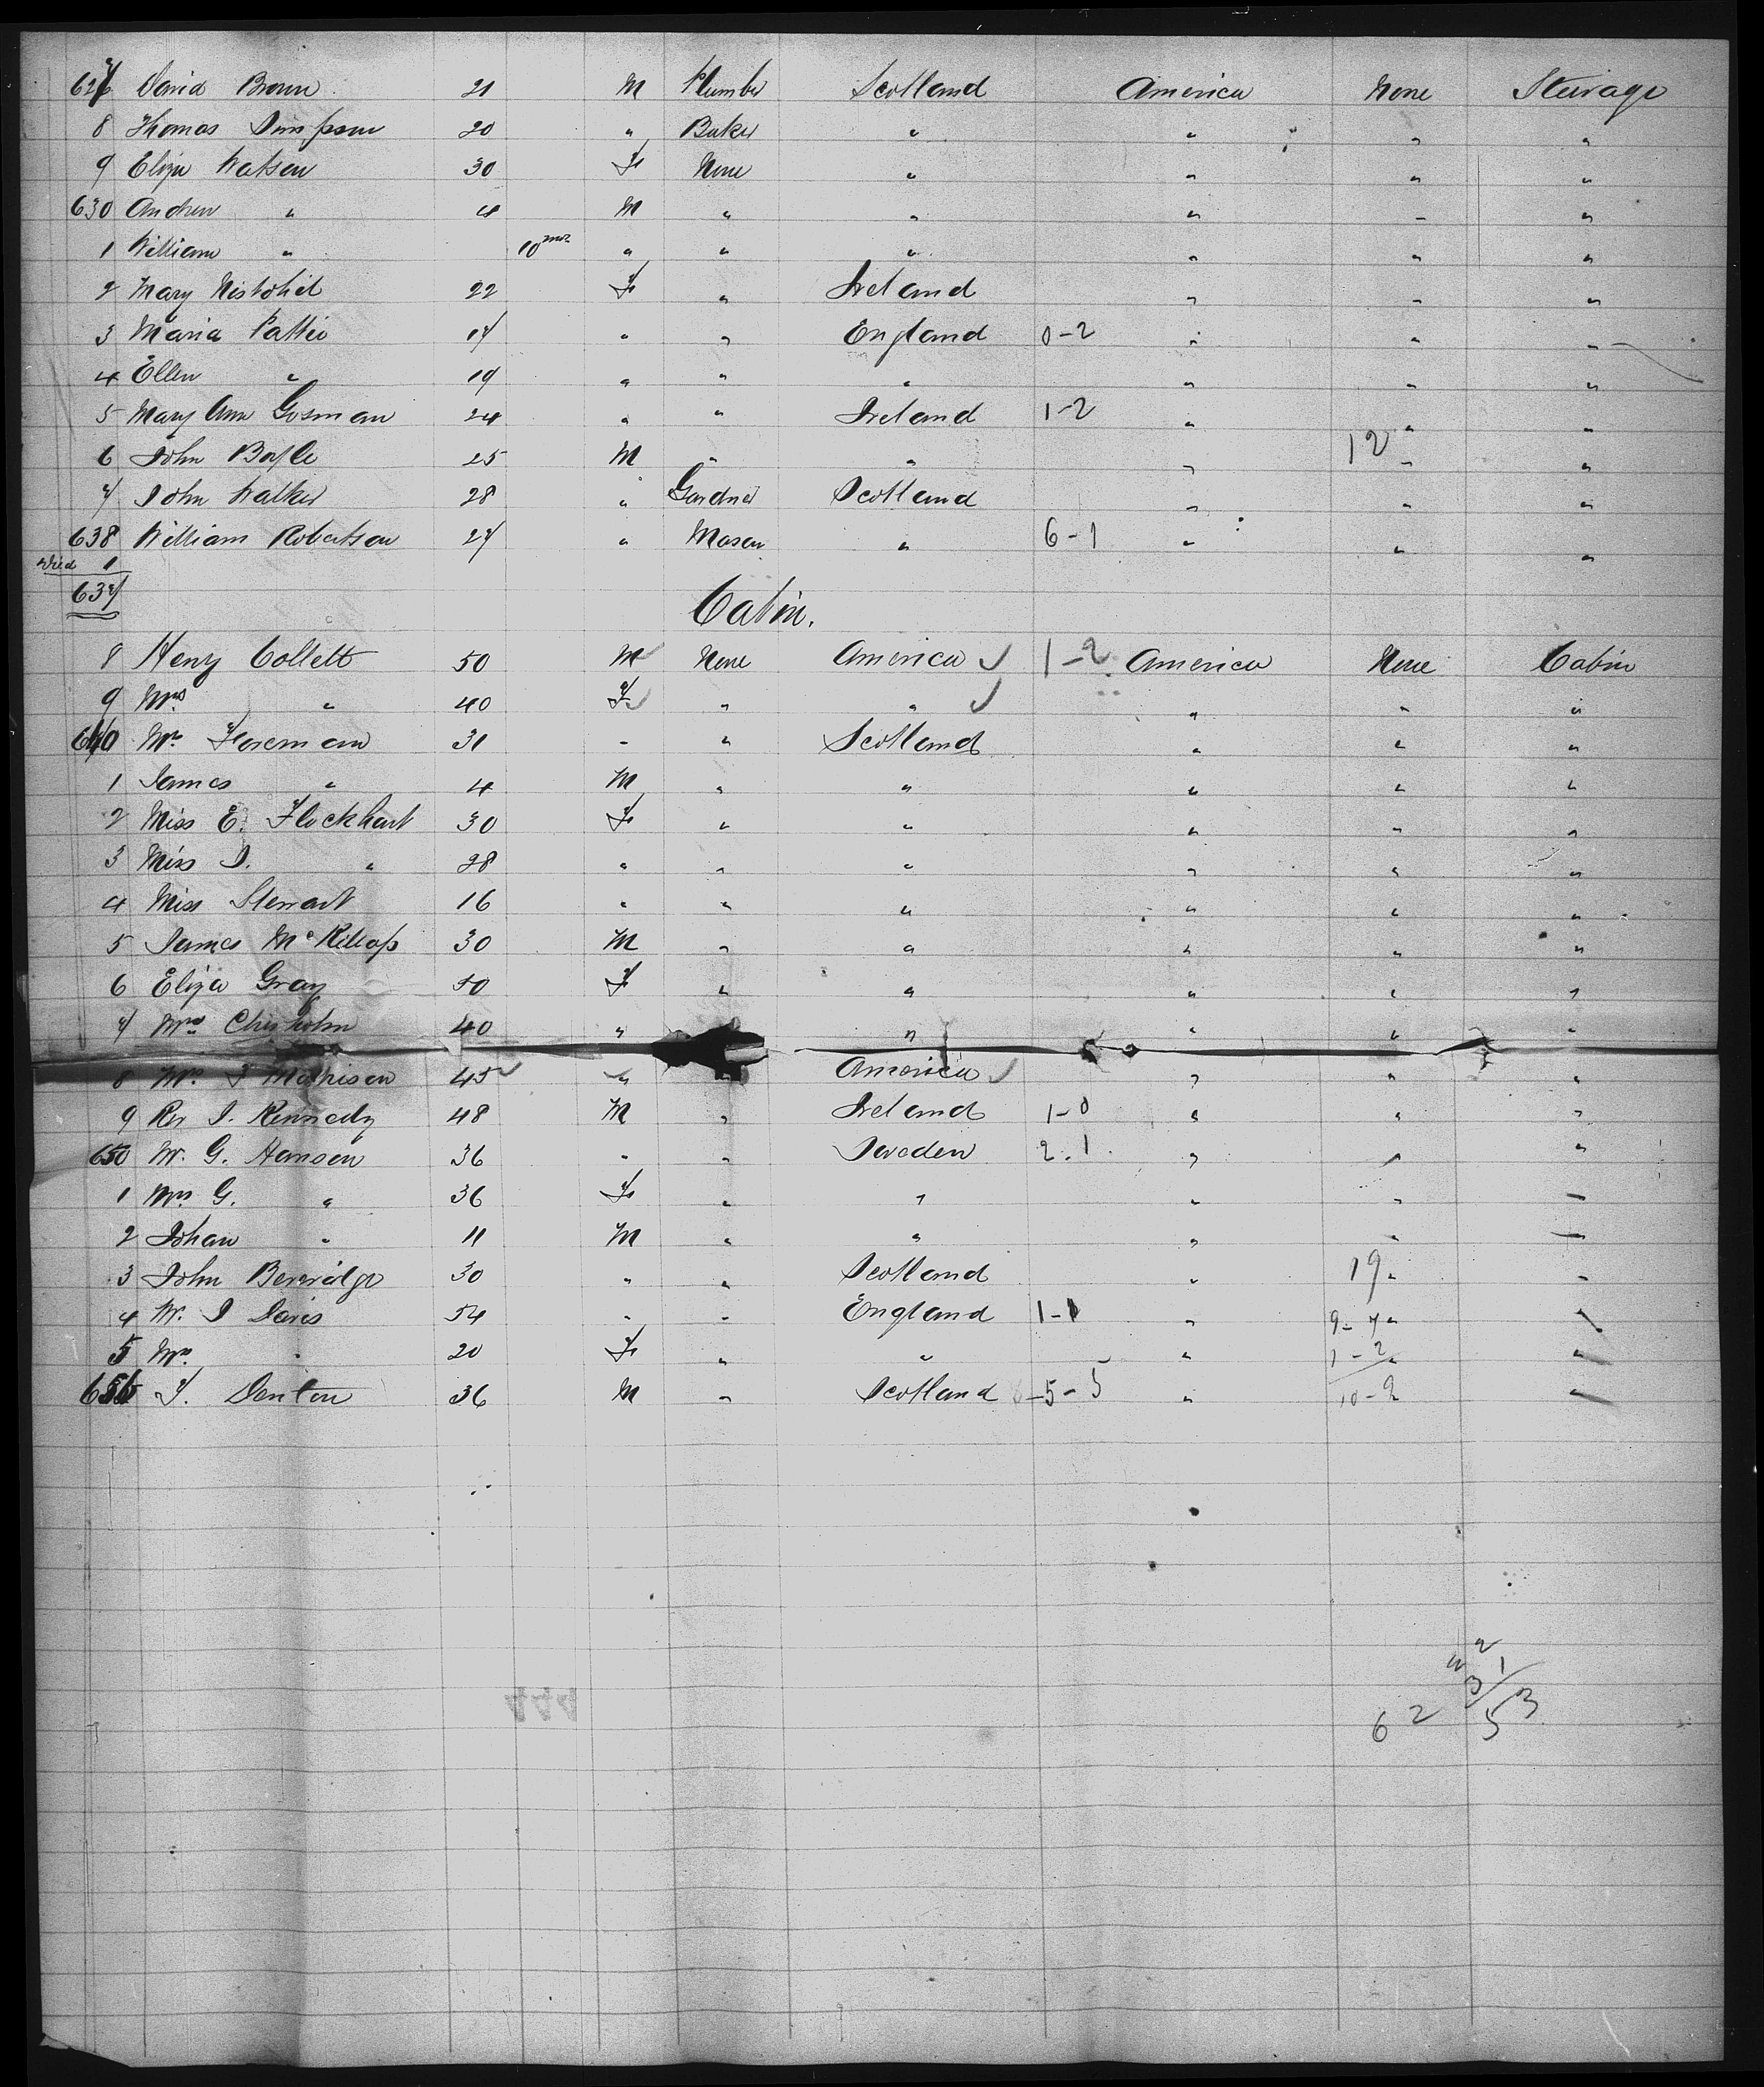 627 David Brown 21 M Plumber Scotland America None Steirage
8 Thomas Simpson 20 " Baker " " " "
9 Eliza Watson 30 F None " " " "
630 Andrew " 4 M " " " " "
1 William " 10 mos " " " " " "
2 Mary 22 F " Ireland " " "
3 Maria Pattie 17 " " England 0-2 " " "
4 Ellen " 19 " " " " " "
5 Mary Ann Gosman 24 " " Ireland 1-2 " " "
6 John Boyle 25 M " " " 12 " "
7 John Walker 28 " Gardner Scotland " " "
638 William Robertson 27 " Mason " 6-1 " " "
Died 1
637
Cabin.
8 Henry Collett 50 M None America 1-2 America None Cabin
9 Mrs " 40 F " " " " "
640 Mrs Foreman 31 " " Scotland " " "
1 James " 4 M " " " " "
2 Miss E. Flockhart 30 F " " " " "
3 Miss I. " 28 " " " " " "
4 Miss Stewart 16 " " " " " "
5 James McKillop 30 M " " " " "
6 Eliza Gray 50 F " " " " "
7 Mrs Chisholm 40 " " " " "
8 Mrs J Mathison 45 " " America " " "
9 Rev J. Kennedy 48 M " Ireland 1-0 " " "
650 Mr. G. Hanson 36 " " Sweden 2.1 " " "
1 Mrs G. " 36 F " " " " "
2 Johan " 11 M " " " " "
3 John Beveridge 30 " " Scotland " 19 " "
4 Mr. J Davis 54 " " England 1-1 " 9-7 " "
5 Mrs " 20 F " " " 1-2 " "
656 J. Denton 36 M " Scotland -5-5 " 10-2 "
444
2
3 1
6 2 5 3